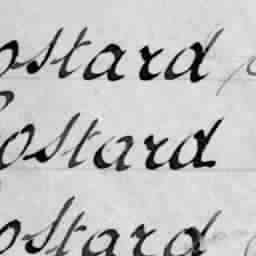 ostard
Costard
ostard